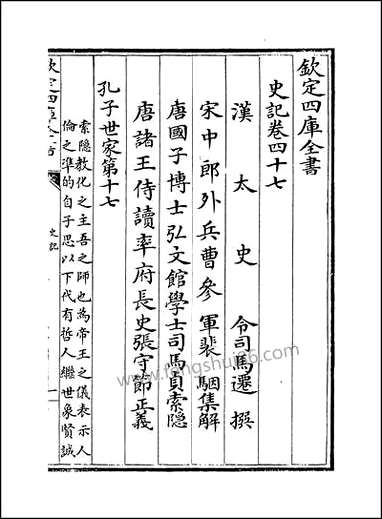 欽定四庫全書
史記卷四十七
漢太史令司馬遷撰
宋中郎外兵曹參軍裴駰集解
唐國子博士弘文館學士司馬貞索隱
唐諸王侍讀率府長史張守節正義
孔子世家第十七
索隱教化之主吾之師也為帝王之儀表示人
倫之準的自子思以下代有哲人繼世象賢誠
欽定四庫全書
史記
一